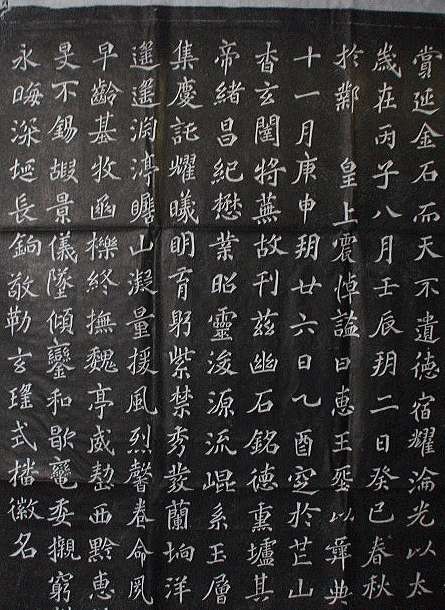 賞延金石而天不遺德宿耀淪光以太
歲在丙子八月壬辰朔二日癸巳春秋
於鄴 皇上震悼謚曰惠王塟以彝典
十一月庚申朔廿六日乙酉窆於芒山
杳玄闥將蕪故刊茲幽石銘德熏壚其
帝緒昌紀懋業昭靈浚源流崐系玉層
集慶託耀曦明育躬紫禁秀發蘭坰洋
遙遙淵渟瞻山凝量援風烈馨眷命夙
早齡基牧函櫟終撫魏亭威懃西黔惠
旻不錫嘏景儀墜傾鑾和歇委櫬窮
永晦深埏長敬勒玄瑤式播徽名